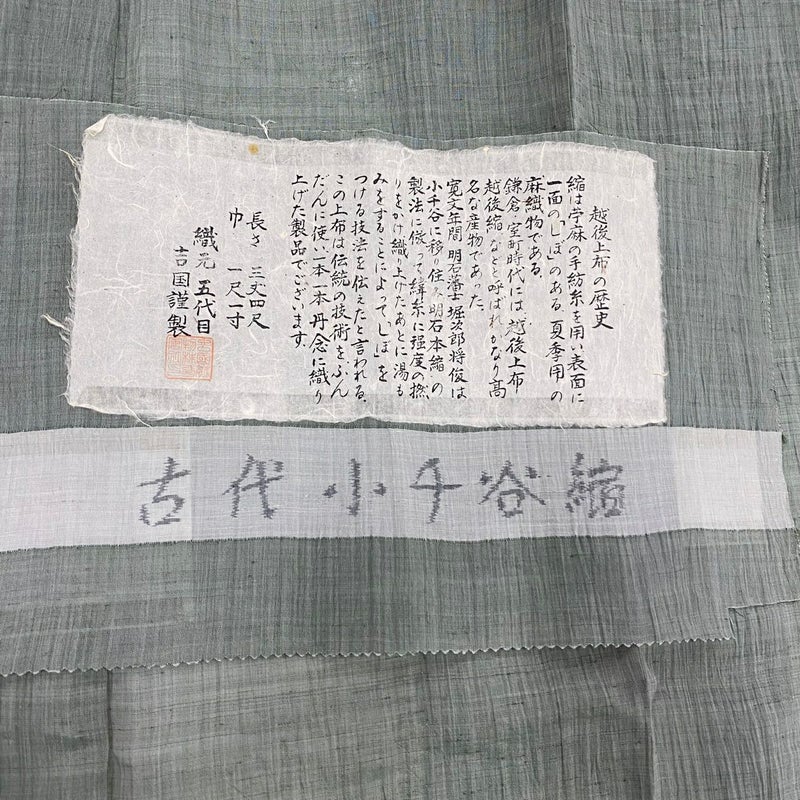 越後上布の歴史
縮は苧麻の手紡糸を用い表面に
一面の「しぼ」のある夏季用の
麻織物である。
鎌倉、室町時代には、越後上布
越後縮などと呼ばれかなり高
名な産物であった。
寛文年間明石藩士堀次郎将俊は
小千谷に移り住み明石本縮の
製法に倣って緯糸に強度の撚
りをかけ織り上げたあとに湯も
みをすることによって「しぼ」を
つける技法を伝えたと言われる。
この上布は伝統の技術をふん
だんに使い一本一本丹念に織り
上げた製品でございます。
長さ 三丈四尺
巾 一尺一寸
織元 五代目
吉国謹製
古代小千谷縮